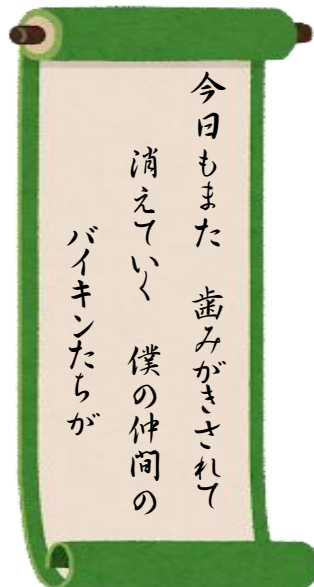 今日もまた　歯みがきされて
消えていく　僕の仲間の
バイキンたちが